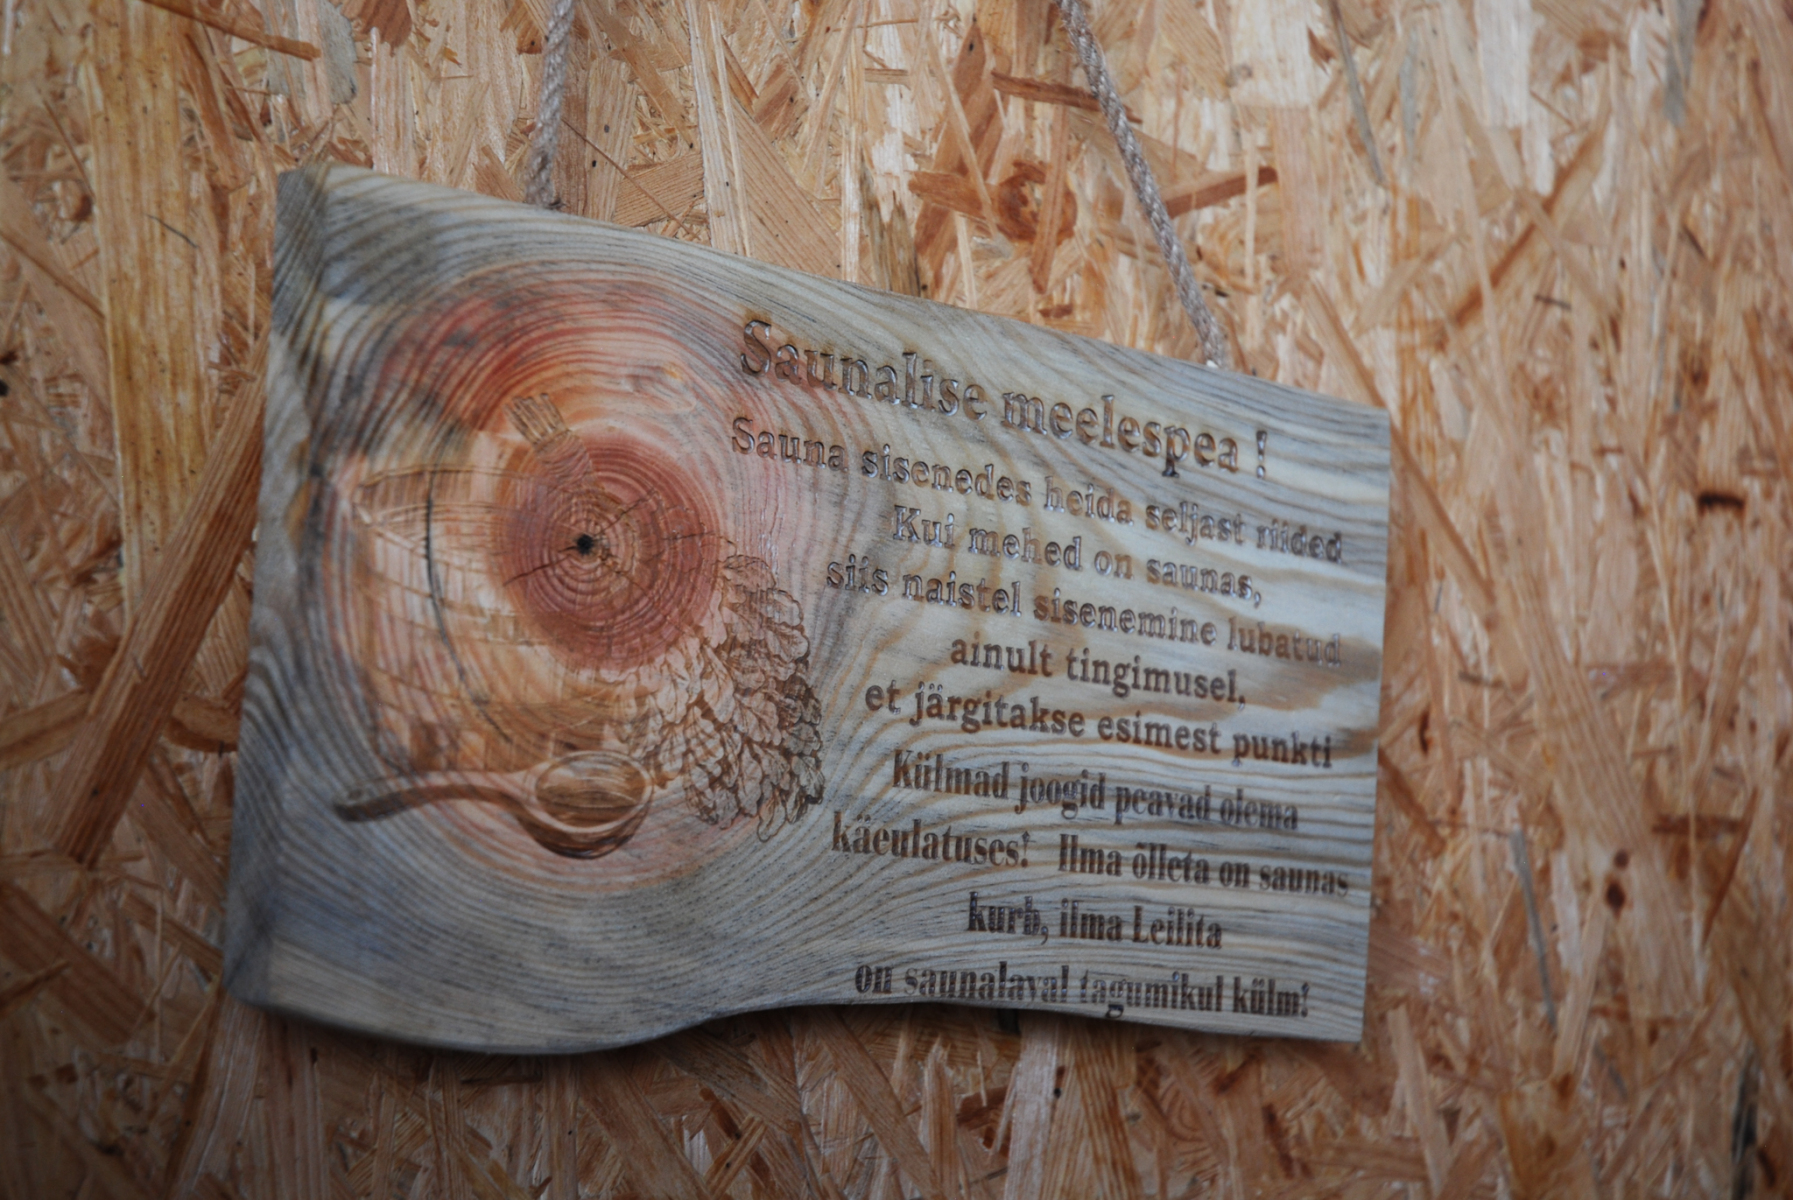 Saunalise meelespea !
Sauna sisenedes heida seljast riided
Kui mehed on saunas,
siis naistel sisenemine lubatud
ainult tingimusel,
et järgitakse esimest punkti
Külmad joogid peavad olema
käeulatuses! Ilma õlleta on saunas
kurb, ilma Leilita
on saunalaval tagumikul külm!